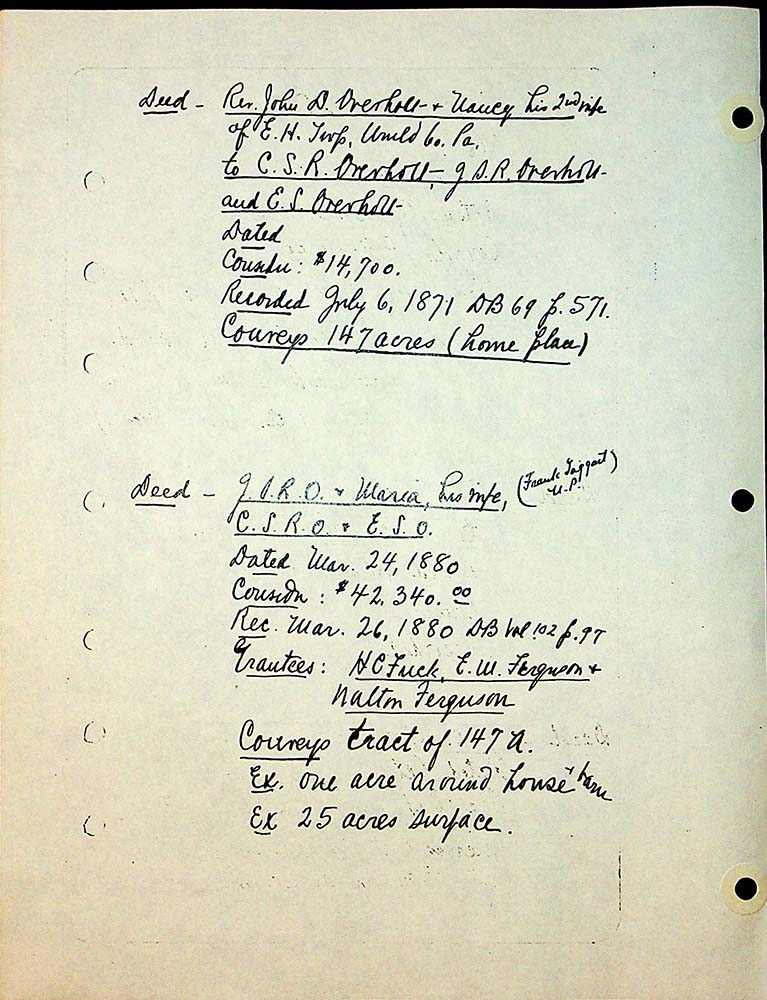 Deed - Rev. John D. Overholt + Nancy his 2nd wife
of E. H. Twp, Wmld Co. Pa.
to C. S. R. Overholt, J S. R. Overholt
and E. S. Overholt
Dated
Considn : $14,700.
Recorded July 6, 1871 DB 69 p. 571.
Conveys 147 acres (home place)
Deed - J. S. R. O. + Maria, his wife, (Frank Taggart
N.P.)
C. S. R. O. + E. S. O.
Dated Mar. 24, 1880
Considn : $42,340. 00
Rec. Mar. 26, 1880 DB Vol 102 p. 97
Grantees : H C Frick, E. M. Ferguson +
Walton Ferguson
Conveys tract of 147 A.
Ex. one acre around house + barn
Ex 25 acres surface.